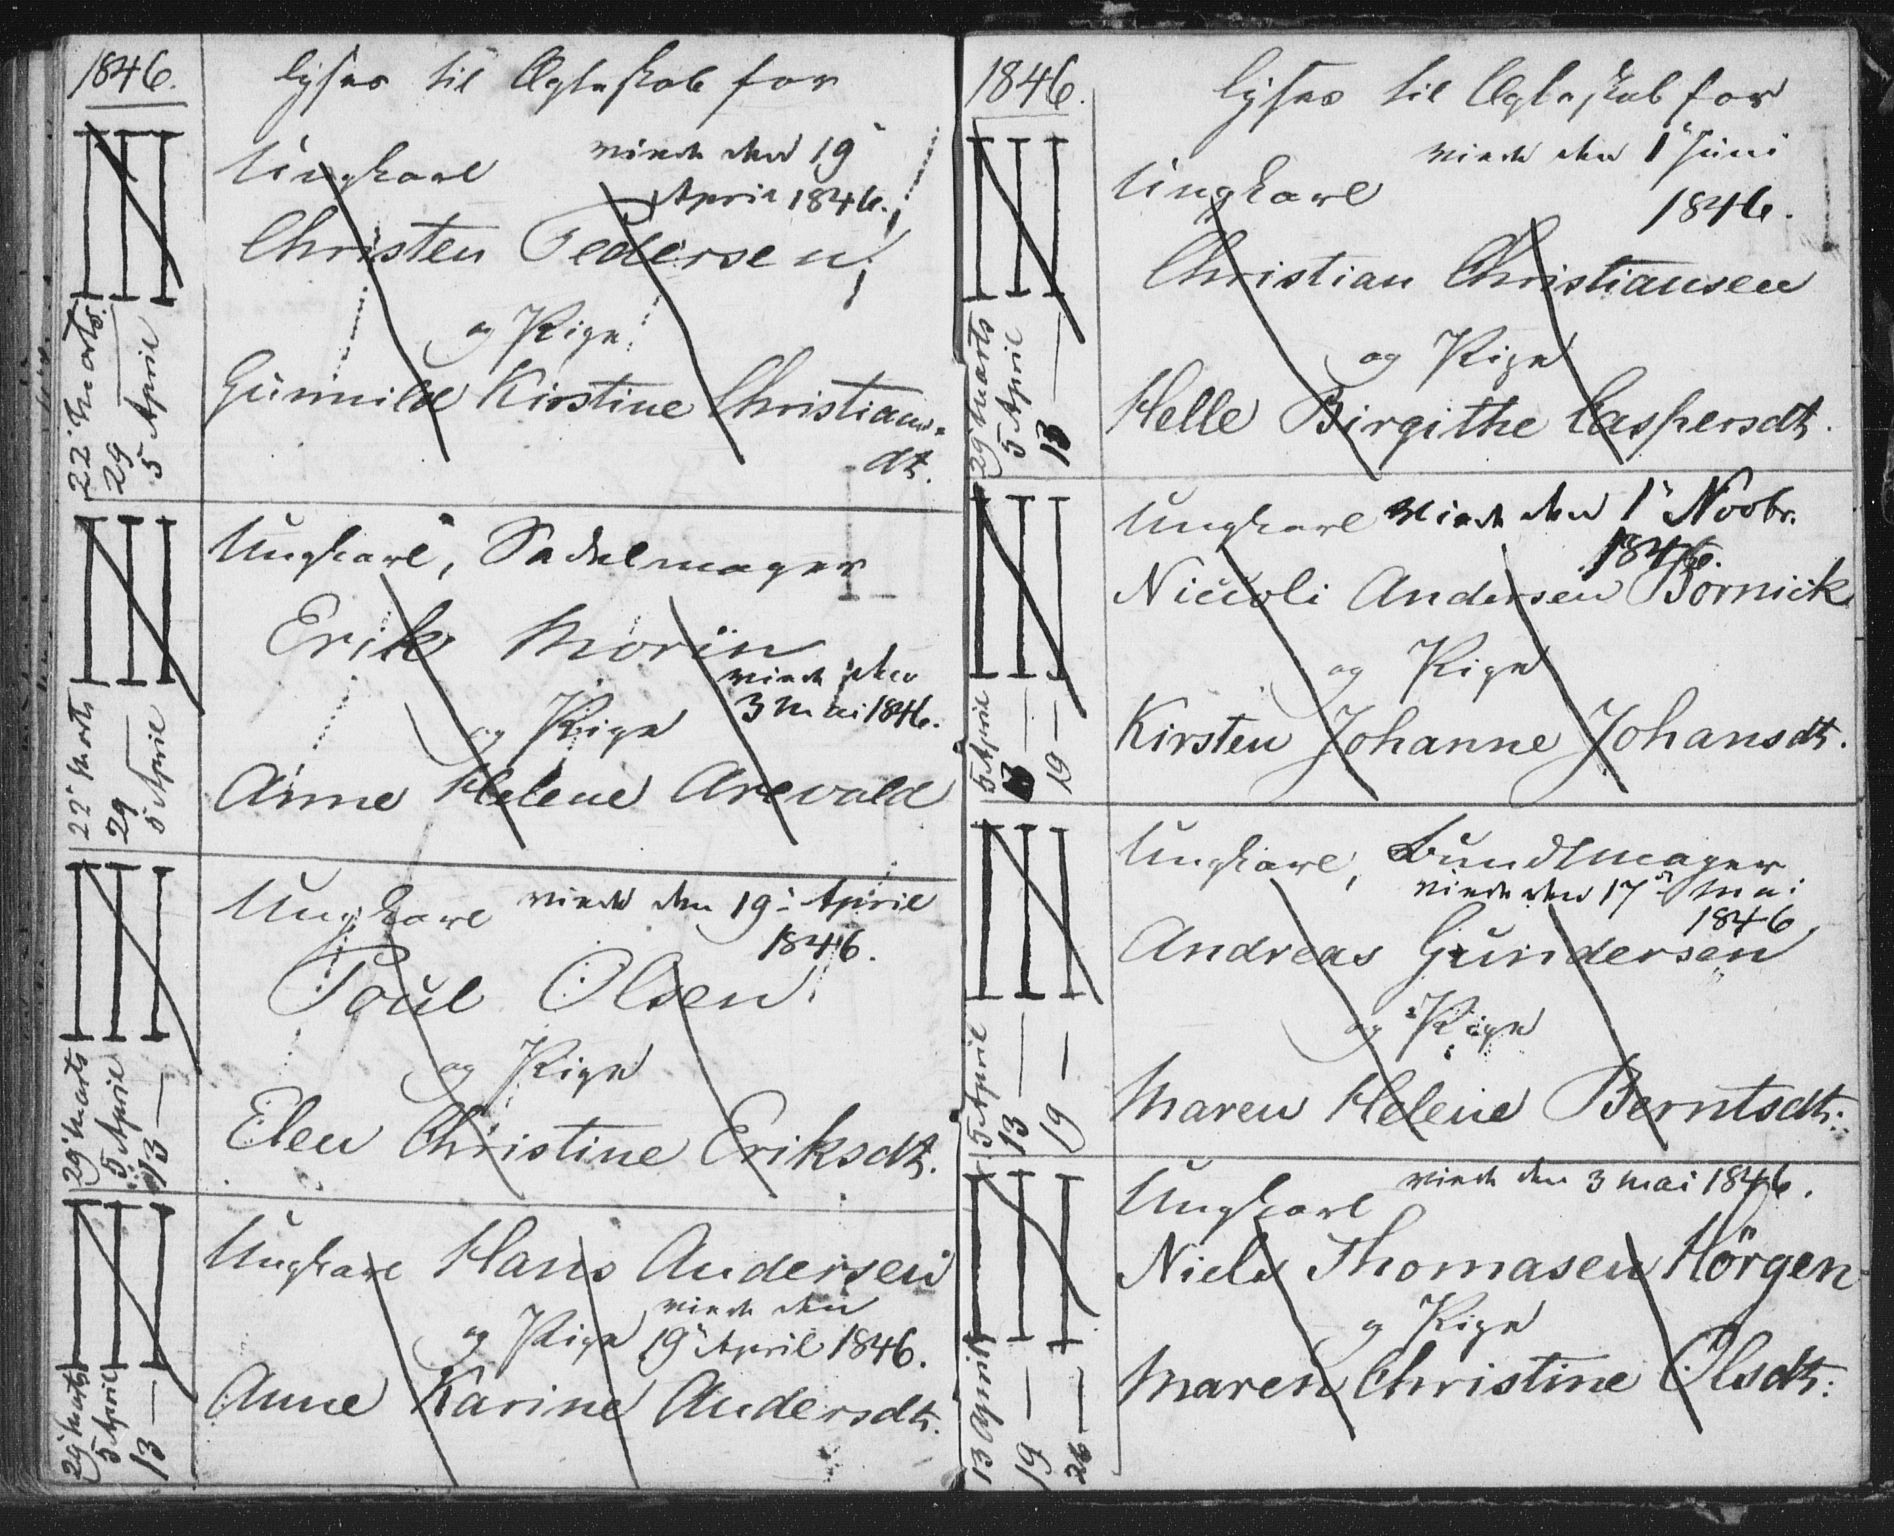 1846.
lyses til Ægteskab for
Ungkarl
viede den 19
April 1846.
Christen Pedersen
og Pige
Gunnild Kirstine Christians-
dt.
22 Marts.
29
5 April
Ungkarl, Sadelmager
Erik Morin
viede den
3 Mai 1846.
og Pige
Anne Helene Arevald
22 Marts
29
5 April
Ungkarl viede den 19 April
1846.
Poul Olsen
og Pige
Elen Christine Eriksdt.
29 Marts
5 April
13 —
Ungkarl Hans Andersen
viede den
og Pige 19 April 1846.
Anne Karine Andersdt.
29 Marts
5 April
13 —
1846.
lyses til Ægteskab for
viede den 1 Juni
Ungkarl
1846.
Christian Christiansen
og Pige
Helle Birgithe Caspersdt.
29 Marts
5 April
13 —
Ungkarl viede den 1 Novbr.
1846.
Nicoli Andersen Bornick
og Pige
Kirsten Johanne Johansdt.
5 April
13 —
19 —
Ungkarl, Bundtmager
viede den 17 Mai
1846
Andreas Gundersen
og Pige
Maren Helene Berntsdt.
5 April
13 —
19 —
Ungkarl viede den 3 Mai 1846.
Niels Thomasen Hörgen
og Pige
Maren Christine Olsdt.
13 April
19 —
26 —